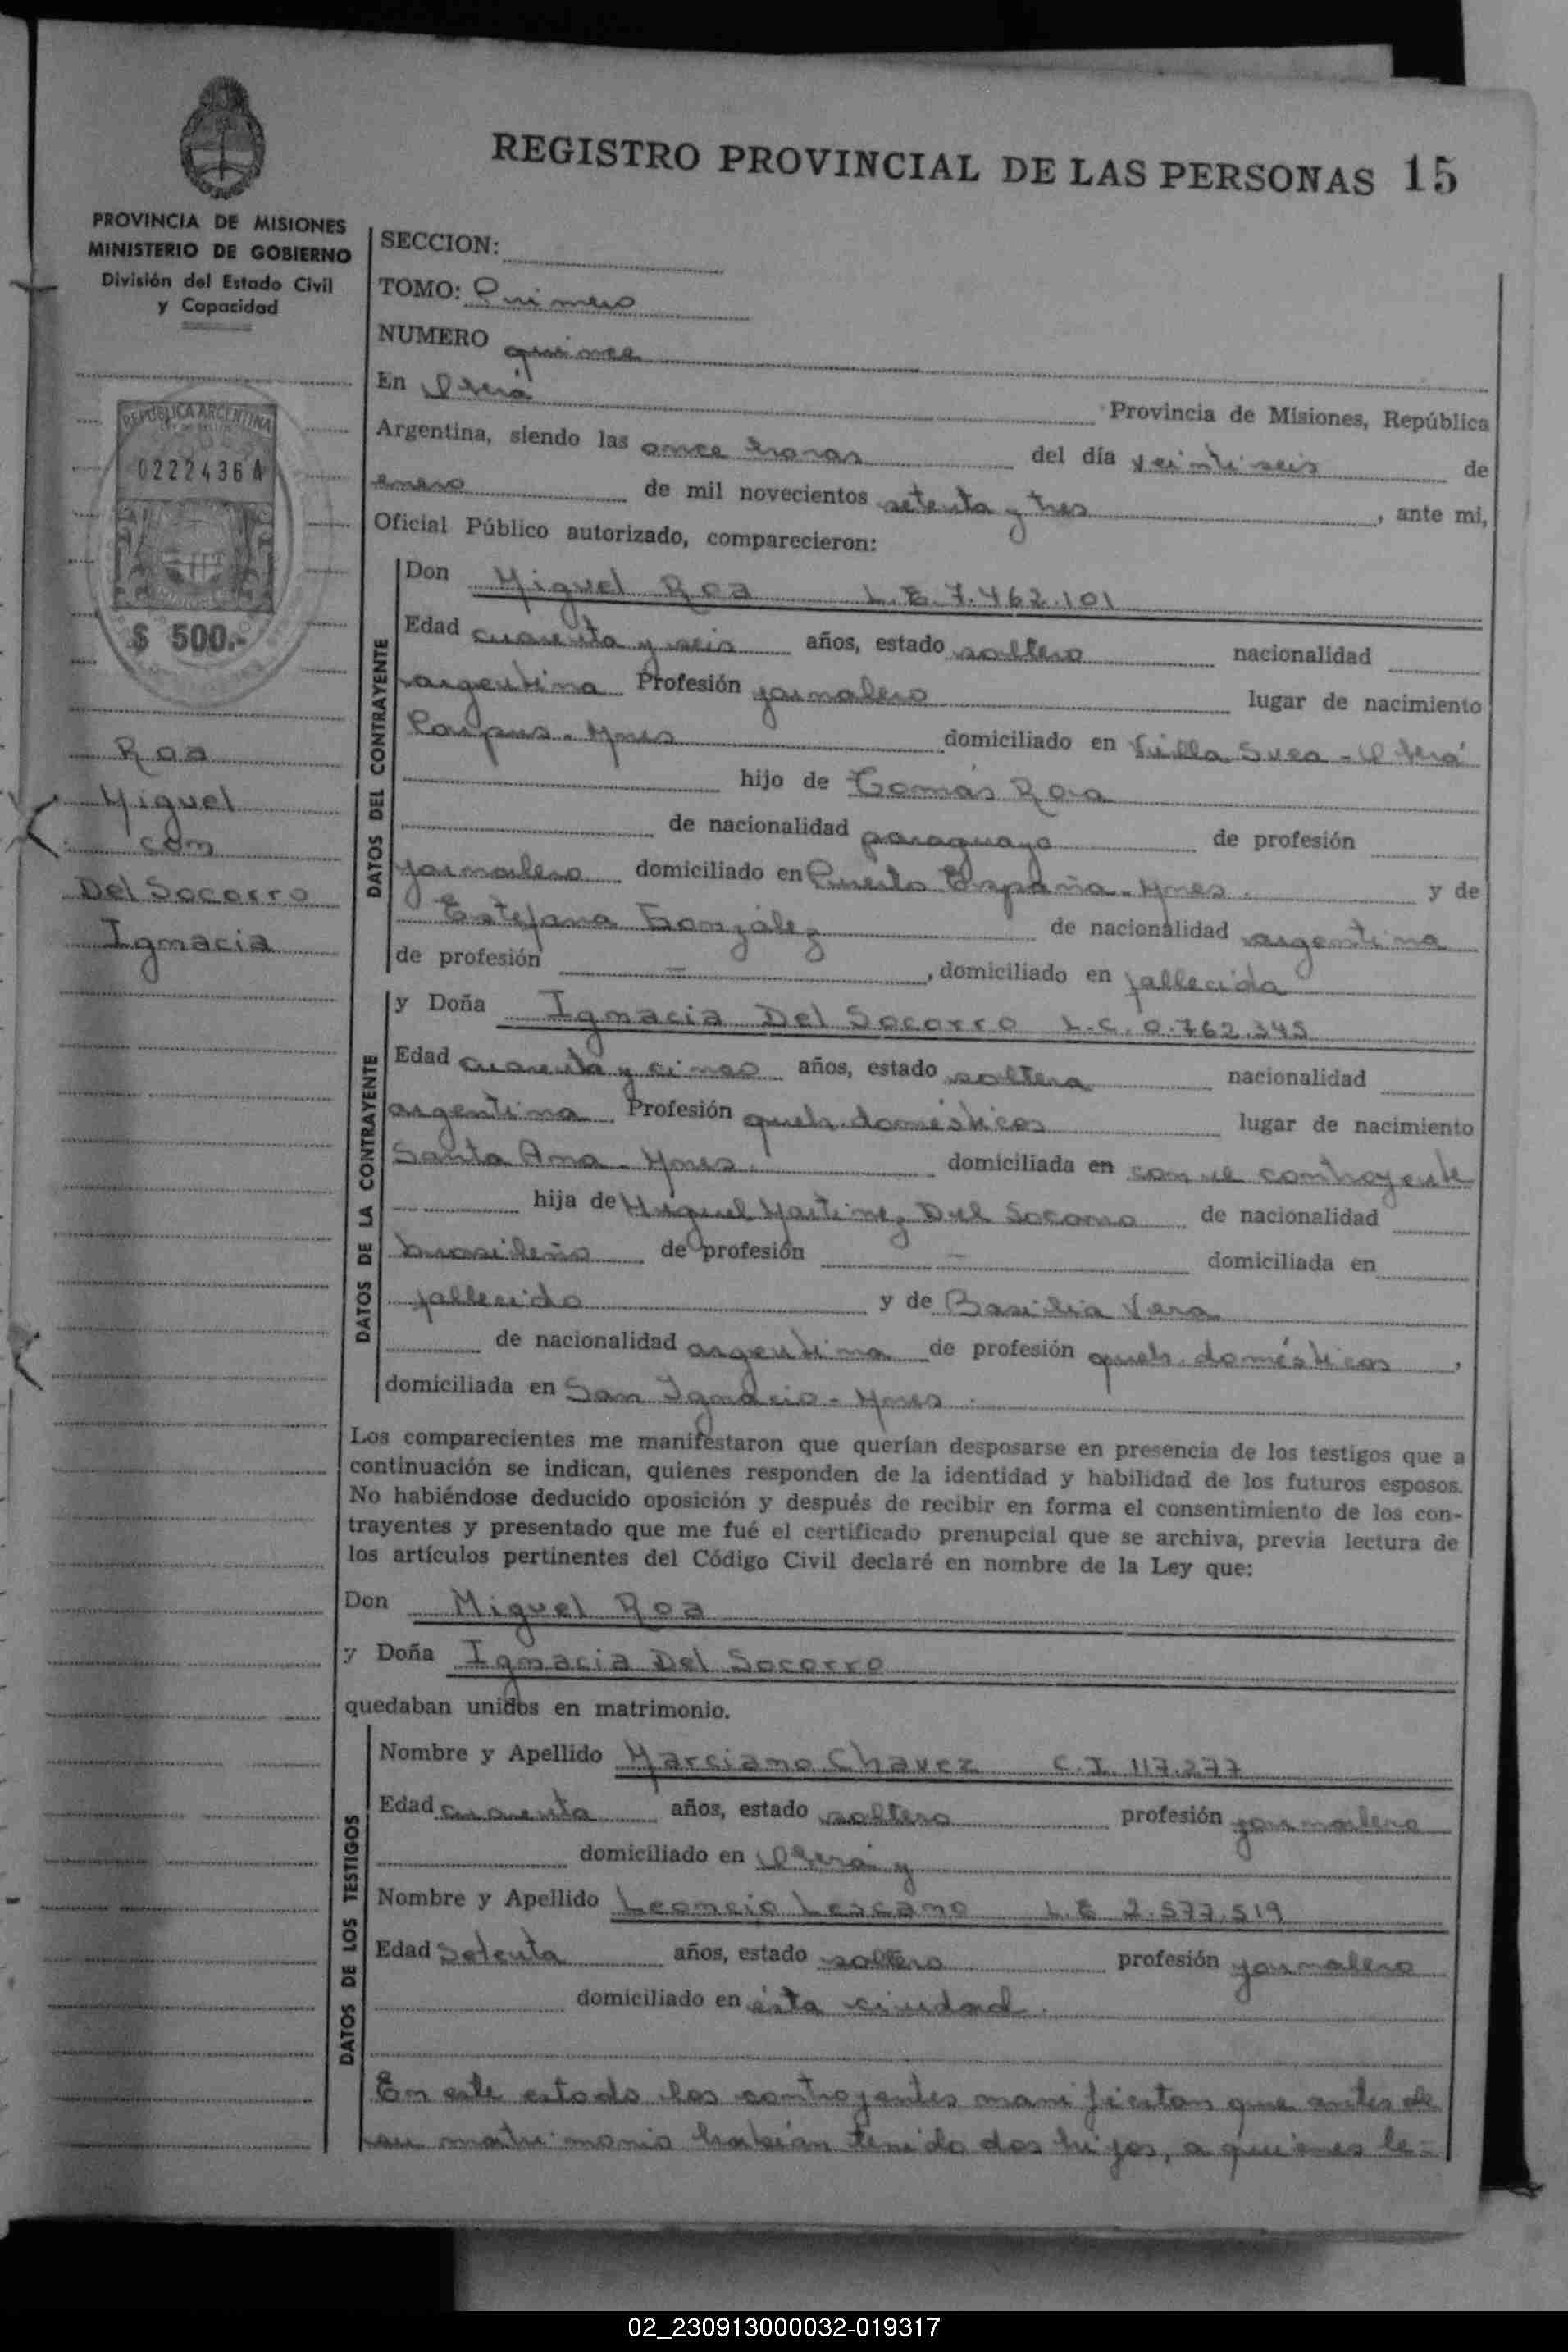 REGISTRO PROVINCIAL DE LAS PERSONAS 15
PROVINCIA DE MISIONES
MINISTERIO DE GOBIERNO
División del Estado Civil
y Capacidad
REPUBLICA ARGENTINA
0222436 A
$ 500.-
Roa
Miguel
con
Del Socorro
Ignacia
SECCION:
TOMO: Primero
NUMERO quince
En Oberá Provincia de Misiones, República
Argentina, siendo las once horas del día veintiseis de
enero de mil novecientos setenta y tres, ante mi,
Oficial Público autorizado, comparecieron:
DATOS DEL CONTRAYENTE
Don Miguel Roa L.E. 7.462.101
Edad cuarenta y seis años, estado soltero nacionalidad
argentina Profesión jornalero lugar de nacimiento
Corpus - Mnes domiciliado en Villa Svea - Oberá
hijo de Tomás Roa
de nacionalidad paraguayo de profesión
jornalero domiciliado en Puerto España - Mnes. y de
Estefana González de nacionalidad argentina
de profesión — , domiciliado en fallecida
DATOS DE LA CONTRAYENTE
y Doña Ignacia Del Socorro L.C. 0.762.345
Edad cuarenta y cinco años, estado soltera nacionalidad
argentina Profesión queh. domésticos lugar de nacimiento
Santa Ana - Mnes. domiciliada en con el contrayente
hija de Miguel Martinez Del Socorro de nacionalidad
brasileño de profesión — domiciliada en
fallecido y de Basilia Vera
de nacionalidad argentina de profesión queh. domésticos,
domiciliada en San Ignacio - Mnes.
Los comparecientes me manifestaron que querían desposarse en presencia de los testigos que a
continuación se indican, quienes responden de la identidad y habilidad de los futuros esposos.
No habiéndose deducido oposición y después de recibir en forma el consentimiento de los con-
trayentes y presentado que me fué el certificado prenupcial que se archiva, previa lectura de
los artículos pertinentes del Código Civil declaré en nombre de la Ley que:
Don Miguel Roa
y Doña Ignacia Del Socorro
quedaban unidos en matrimonio.
DATOS DE LOS TESTIGOS
Nombre y Apellido Marciano Chavez C.I. 117.277
Edad cuarenta años, estado soltero profesión jornalero
domiciliado en Oberá y
Nombre y Apellido Leoncio Lescano L.E 2.577.519
Edad Setenta años, estado soltero profesión jornalero
domiciliado en ésta ciudad.
En este estado los contrayentes manifiestan que antes de
su matrimonio habían tenido dos hijos, a quienes le-
02_230913000032-019317